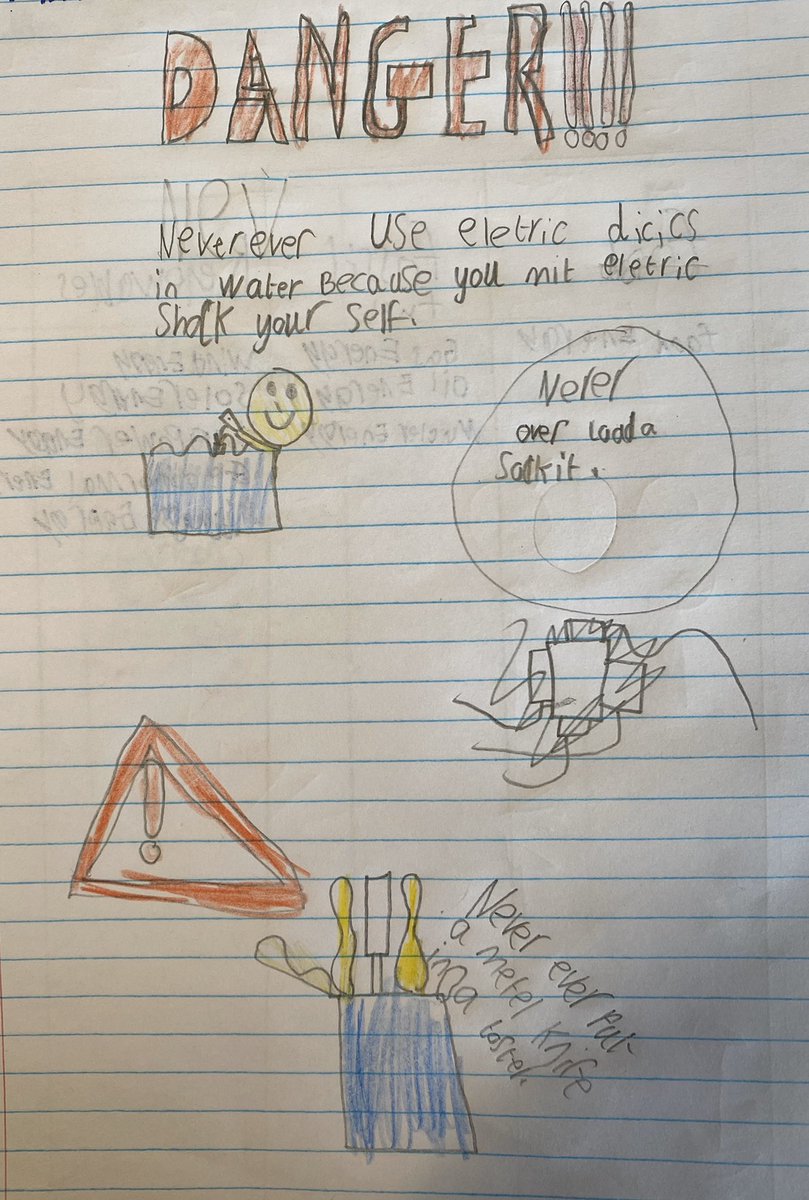 DANGER!!!!
Never ever use eletric dicics
in water Because you mit eletric
Shock your self.
Never
over load a
Sockit.
Never ever Put
a metel knife
in a toster.